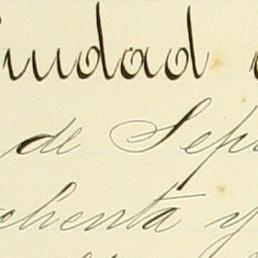 iudad
de Sep
chenta y